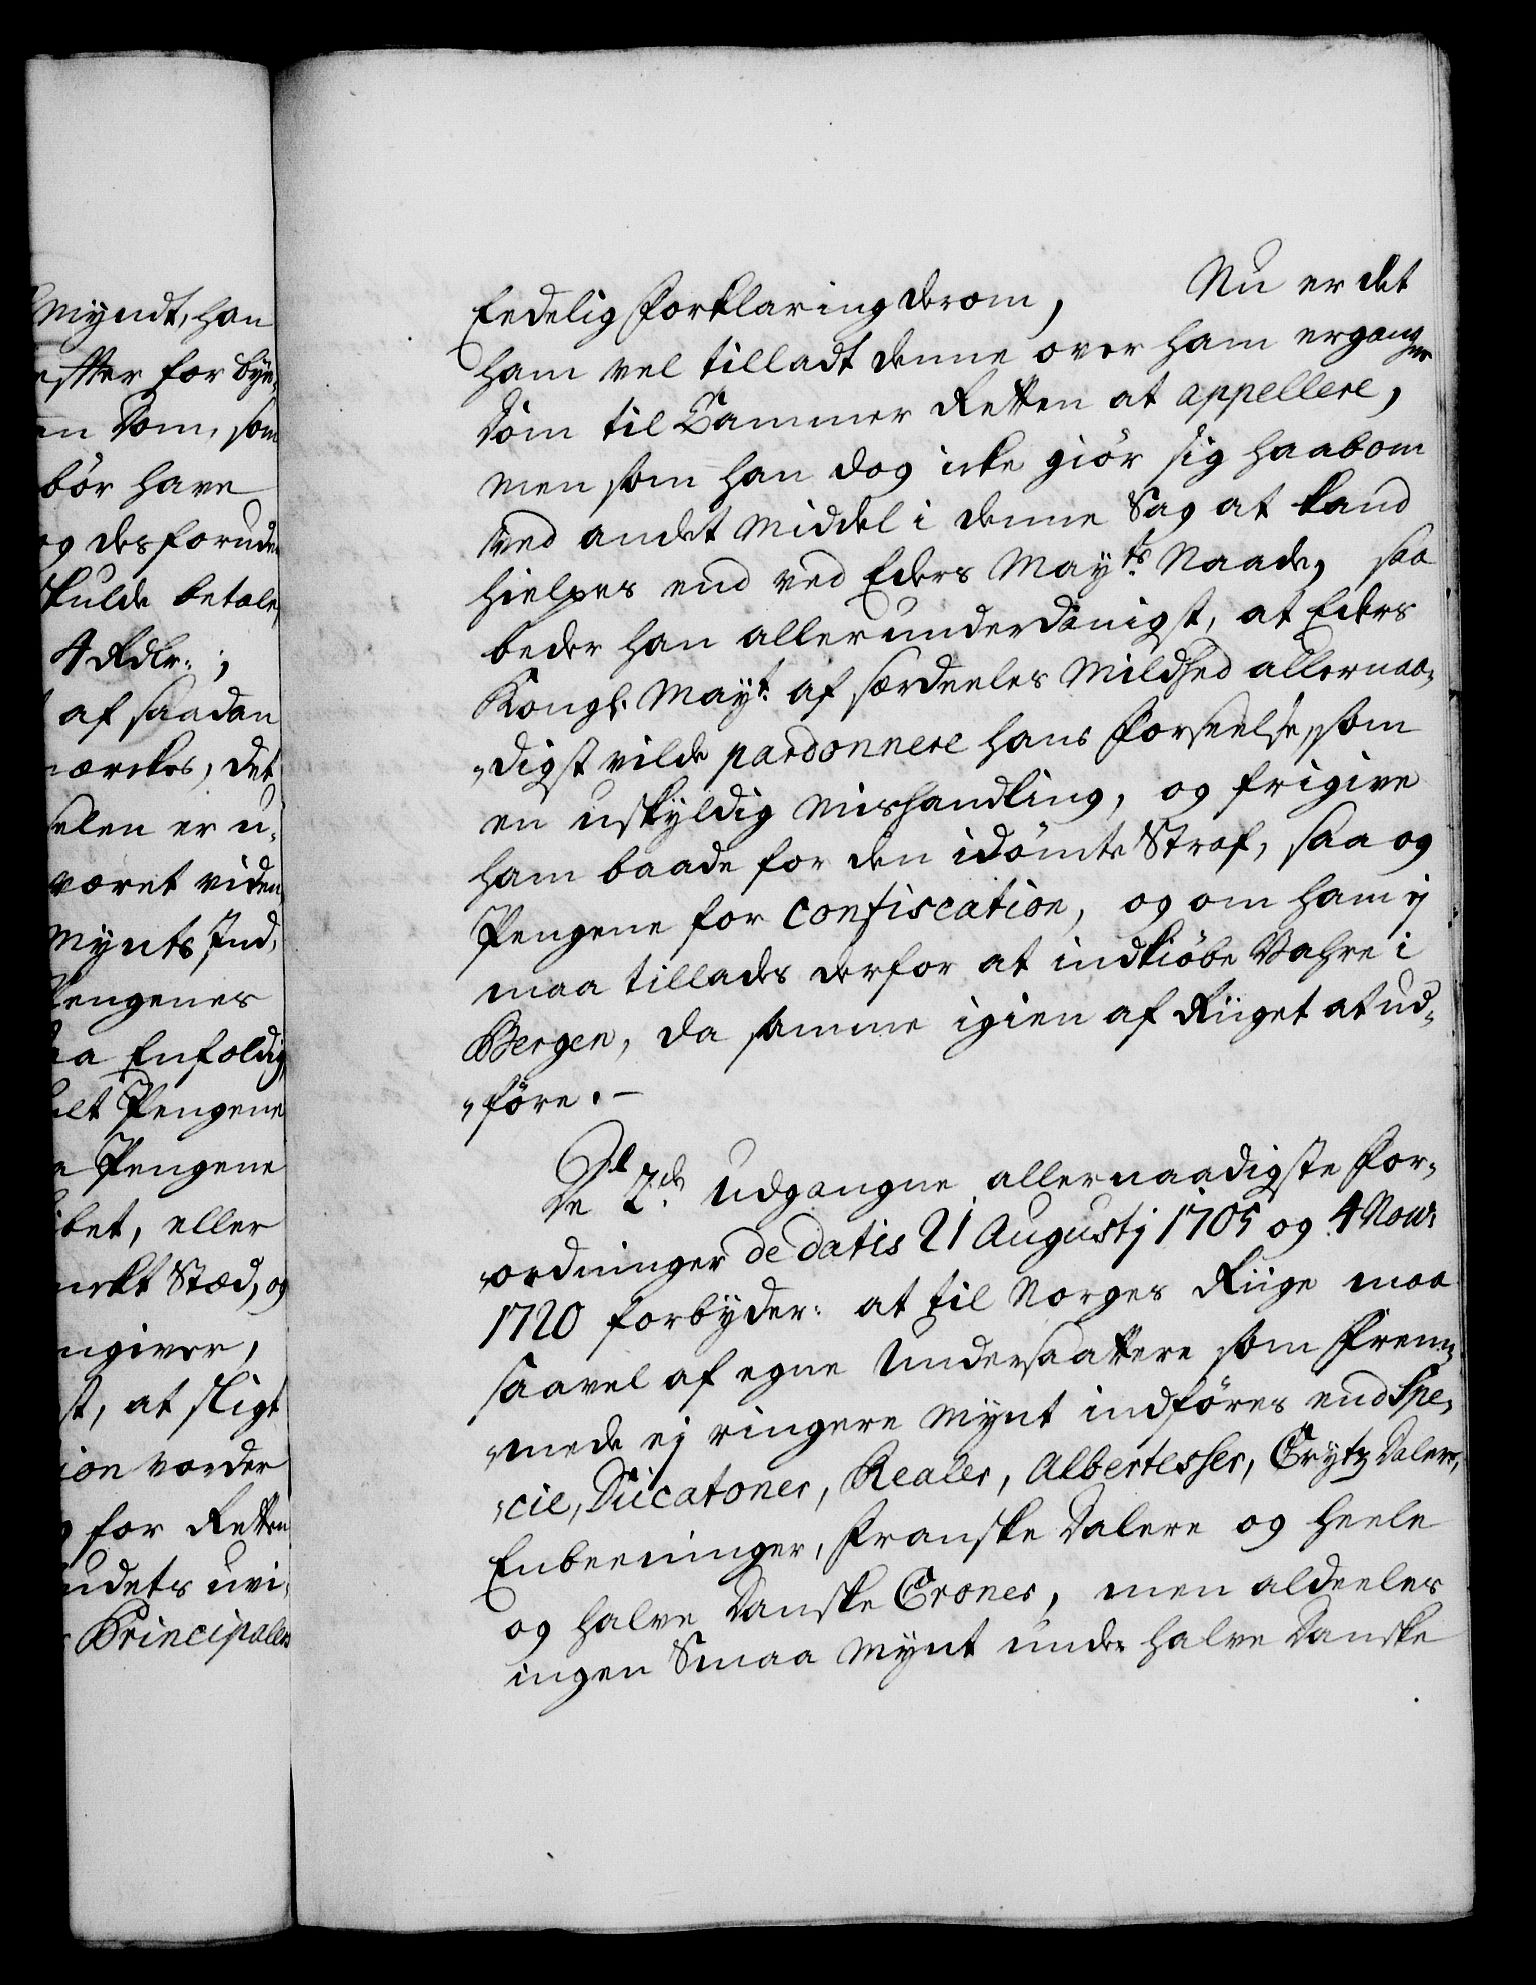 Myndt, han
efter for bÿe,
en Dom, som
bör have
og desforuden
skulde betale,
4 Rdlr: ;
af saadan
mærckes, det
selen er u,
været viden,
Mynts Ind,
Pengenes
saa Enfoldig
Pengene
a Pengene
bet, eller
Stæd, og
ngiver,
st, at sligt
ion vorder
for Retten
udets uvi,
Principaler
Eedelig Forklaring derom, Nu er det
ham vel tilladt denne over ham ergangne
Dom til Cammer Retten at appellere,
men som han dog icke giör sig haab om
ved andet Middel i denne Sag at kand
hielpes end ved Eders Mayts. Naade, saa
beder han allerunderdanigst, at Eders
Kongl. Mayt. af særdeeles Mildhed allernaa,
,digst vilde pardonnere hans Forseelse, som
en uskyldig Mishandling, og frigive
ham baade for den idömte Straf, saa og
Pengene for Confiscation, og om ham ij
maa tillades derfor at indkiöbe Vahre i
Bergen, da samme igien af Riiget at ud,
,före. –
De 2de. udgangne allernaadigste For,
,ordninger de datis 21 Augustj 1705 og 4 Nov:
1720 forbÿder: at til Norges Riige maa
saavel af egne Undersaattere som Frem,
,mede ej ringere Mynt indföres end Spe,
,cie, Ducatoner, Realer, Albertesser, Crÿtz Dalere,
Enbeeninger, Franske Dalere og heele
og halve Danske Croner, men aldeeles
ingen Smaa Mynt under halve Danske